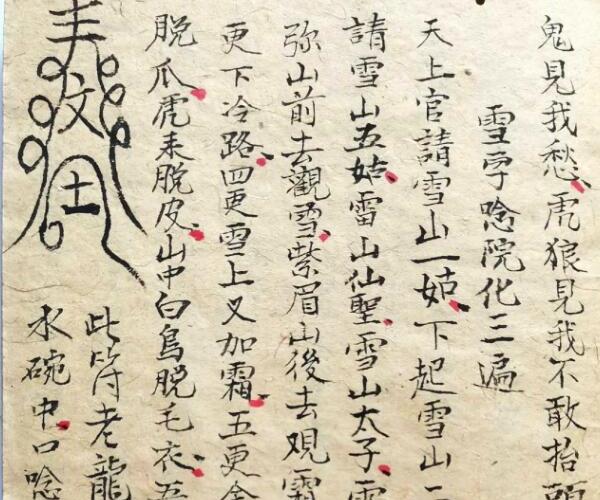 鬼見我愁虎狼見我不敢抬頭
雪字唸院化三遍
天上官請雪山一姑下起雪山二
請雪山五姑雷山仙聖雪山太子雪
弥山前去觀雪紫眉山後去观霜
更下冷路四更雪上又加霜五更
脱爪虎来脱皮山中白鳥脱毛衣吾
文
士
此符老龍
水碗中口唸